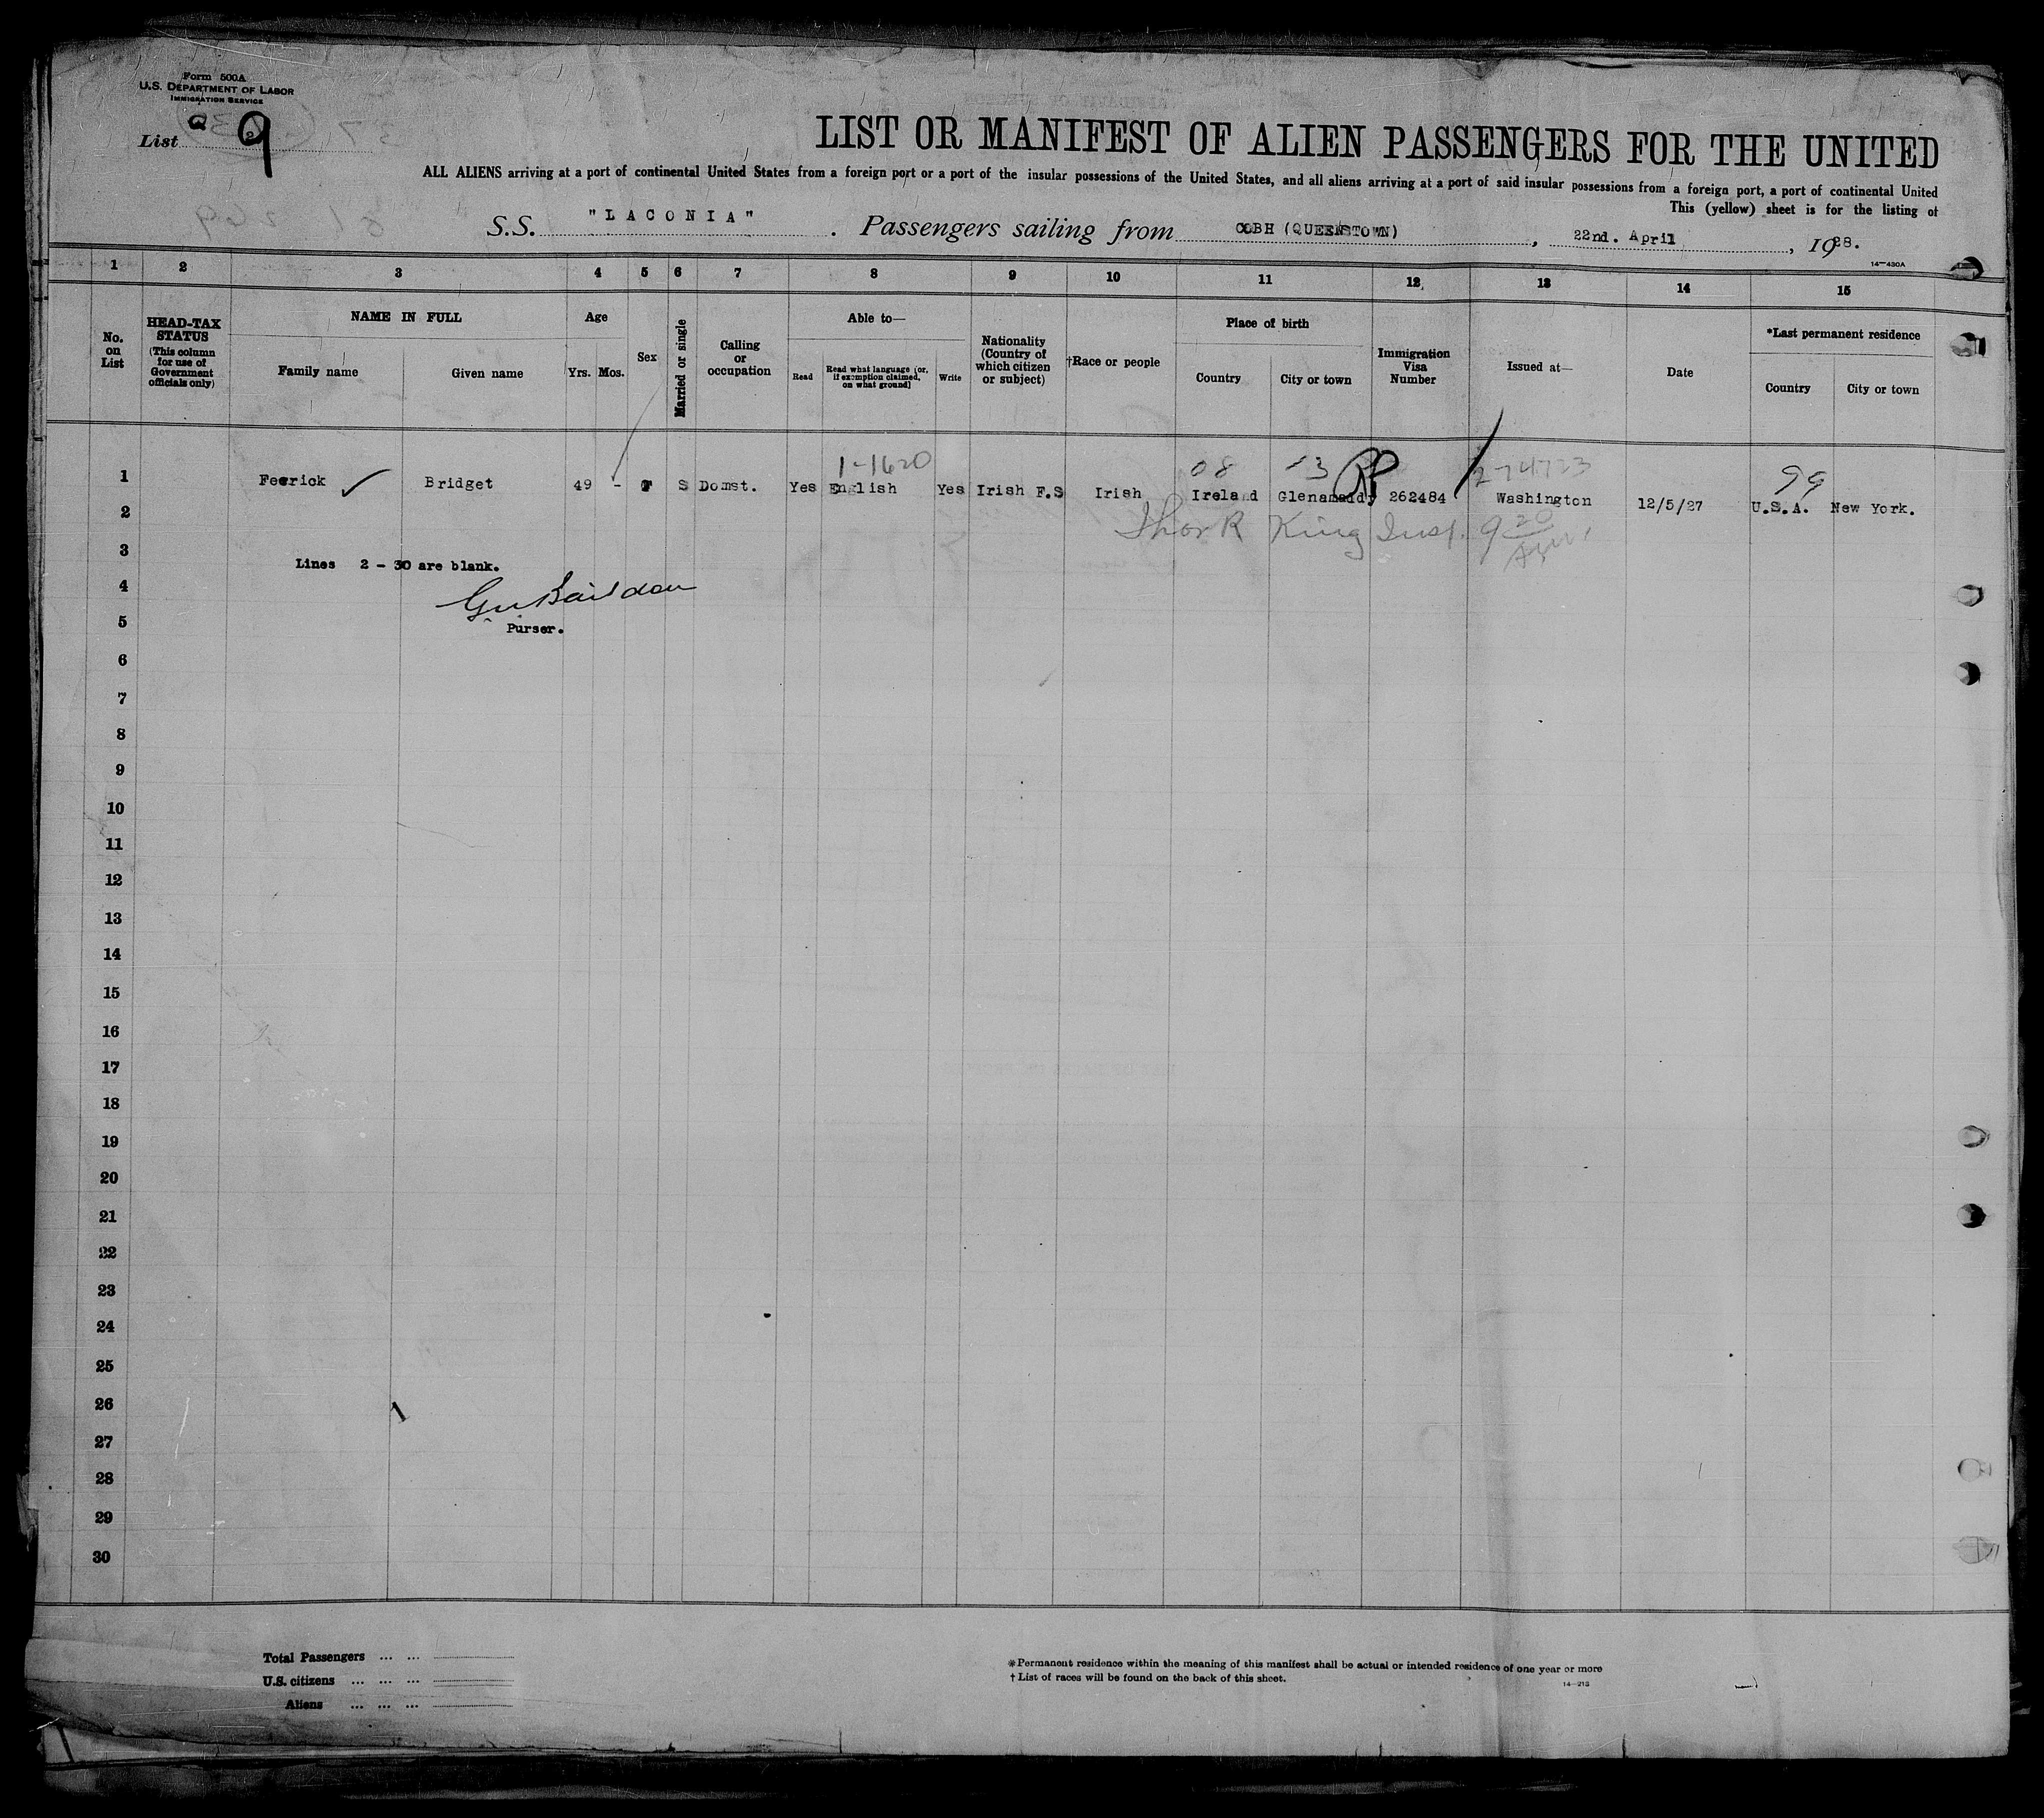 Form 500A
U.S. DEPARTMENT OF LABOR
IMMIGRATION SERVICE
List 9
LIST OR MANIFEST OF ALIEN PASSENGERS FOR THE UNITED
ALL ALIENS arriving at a port of continental United States from a foreign port or a port of the insular possessions of the United States, and all aliens arriving at a port of said insular possessions from a foreign port, a port of continental United
This (yellow) sheet is for the listing of
S.S. "LACONIA". Passengers sailing from COBH (QUEENSTOWN), 22nd. April, 1928.
14—430A
1 2 3 4 5 6 7 8 9 10 11 12 13 14 15
No. on List
HEAD-TAX STATUS (This column for use of Government officials only)
NAME IN FULL
Family name Given name
Age
Yrs. Mos.
Sex
Married or single
Calling or occupation
Able to—
Read Read what language [or, if exemption claimed, on what ground] Write
Nationality (Country of which citizen or subject)
†Race or people
Place of birth
Country City or town
Immigration Visa Number
Issued at—
Date
*Last permanent residence
Country City or town
1-1620 08 274723 99
1 Feerick Bridget 49 - F S Domst. Yes English Yes Irish F.S Irish Ireland Glenamaddy 262484 Washington 12/5/27 U.S.A. New York.
2 King Insp. 9 20
3
Lines 2 - 30 are blank.
4
5
Purser.
6
7
8
9
10
11
12
13
14
15
16
17
18
19
20
21
22
23
24
25
26
27
28
29
30
Total Passengers ... ...
U.S. citizens ... ... ...
Aliens ... ... ...
*Permanent residence within the meaning of this manifest shall be actual or intended residence of one year or more
† List of races will be found on the back of this sheet.
14—213